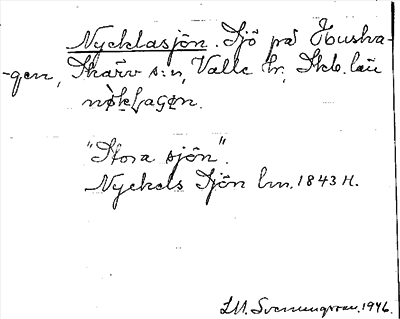 Nycklasjön. Sjö på Husha-
-gen, Skärv s:n, Valle hr, Skb. län
"Stora sjön".
Nyckels Sjön lm. 1843 H.
1946.